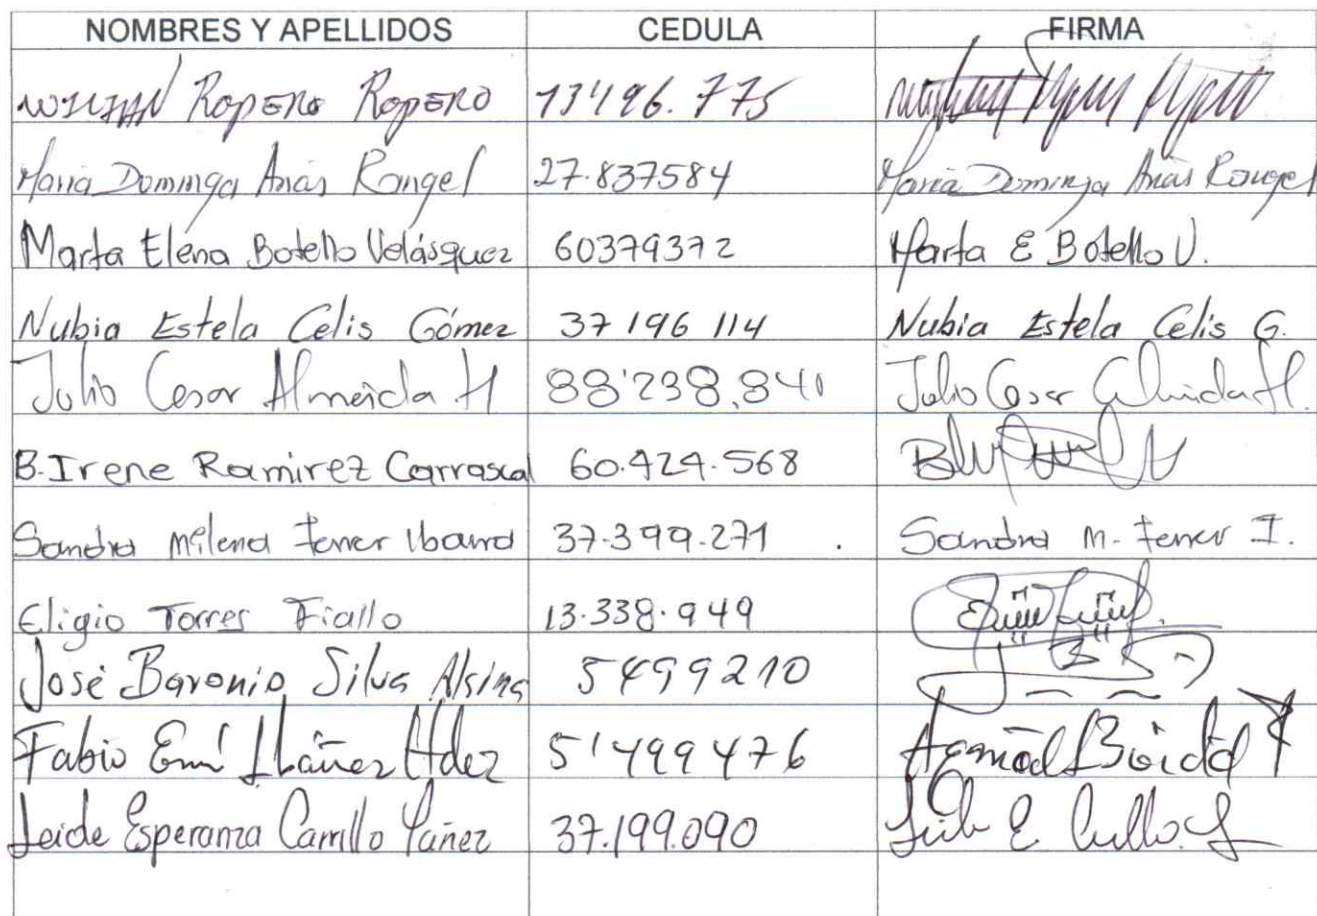 NOMBRES Y APELLIDOS CEDULA FIRMA
WILLIAN Ropero Ropero 13'496.775
Maria Dominga Arias Rangel 27.837584 Maria Dominga Arias Rangel
Marta Elena Botello Velásquez 60379372 Marta E Botello V.
Nubia Estela Celis Gómez 37 196 114 Nubia Estela Celis G.
Julio Cesar Almeida H 88'238.840 Julio Cesar Almeida H.
B. Irene Ramirez Carrascal 60.424.568
Sandra Milena Ferrer Ibarra 37.399.271 . Sandra M. Ferrer I.
Eligio Torres Fiallo 13.338.949
José Baronio Silva Alsina 5499210
Fabio Emí Ibáñez Hdez 5'499476
Leide Esperanza Carrillo Yáñez 37.199.090